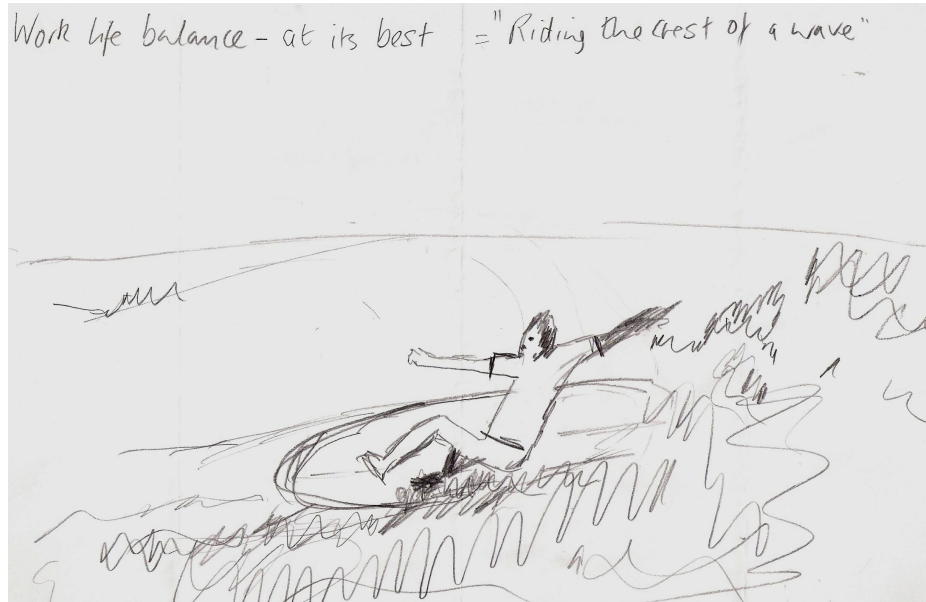 Work life balance - at its best = "Riding the crest of a wave"